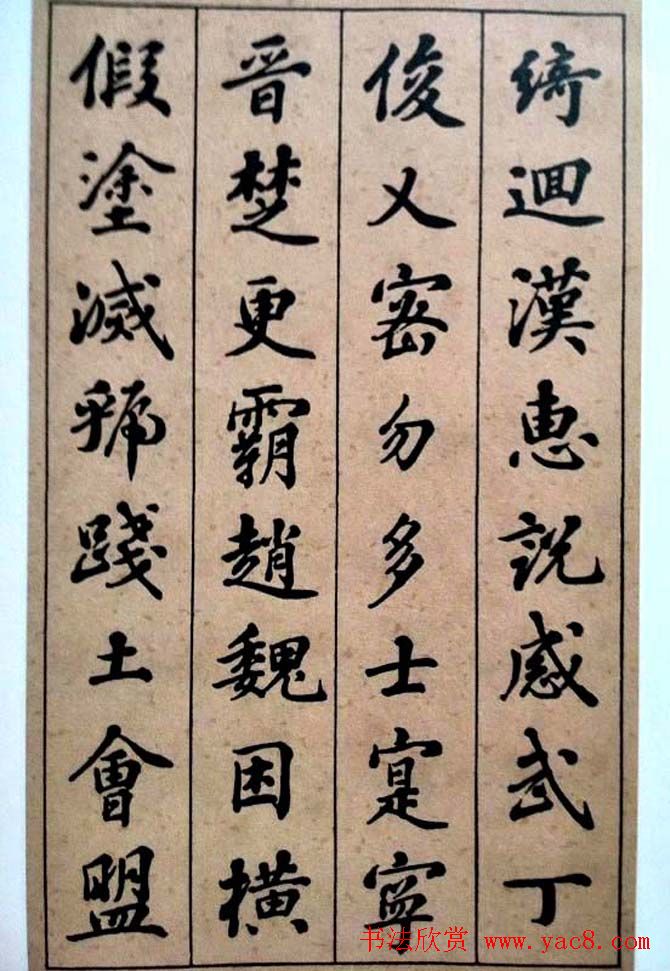 綺迴漢惠說感武丁
俊乂密勿多士寔寧
晉楚更霸趙魏困橫
假塗滅虢踐土會盟
书法欣赏 www.yac8.com